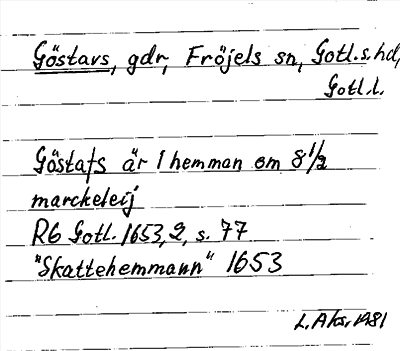 Göstavs, gdr, Fröjels sn, Gotl.s.hd,
Gotl.l.
Göstafs är 1 hemman om 8 1/2
marckeleij
RG Gotl. 1653,2, s. 77
"Skattehemmann" 1653
L. Aks. 1981